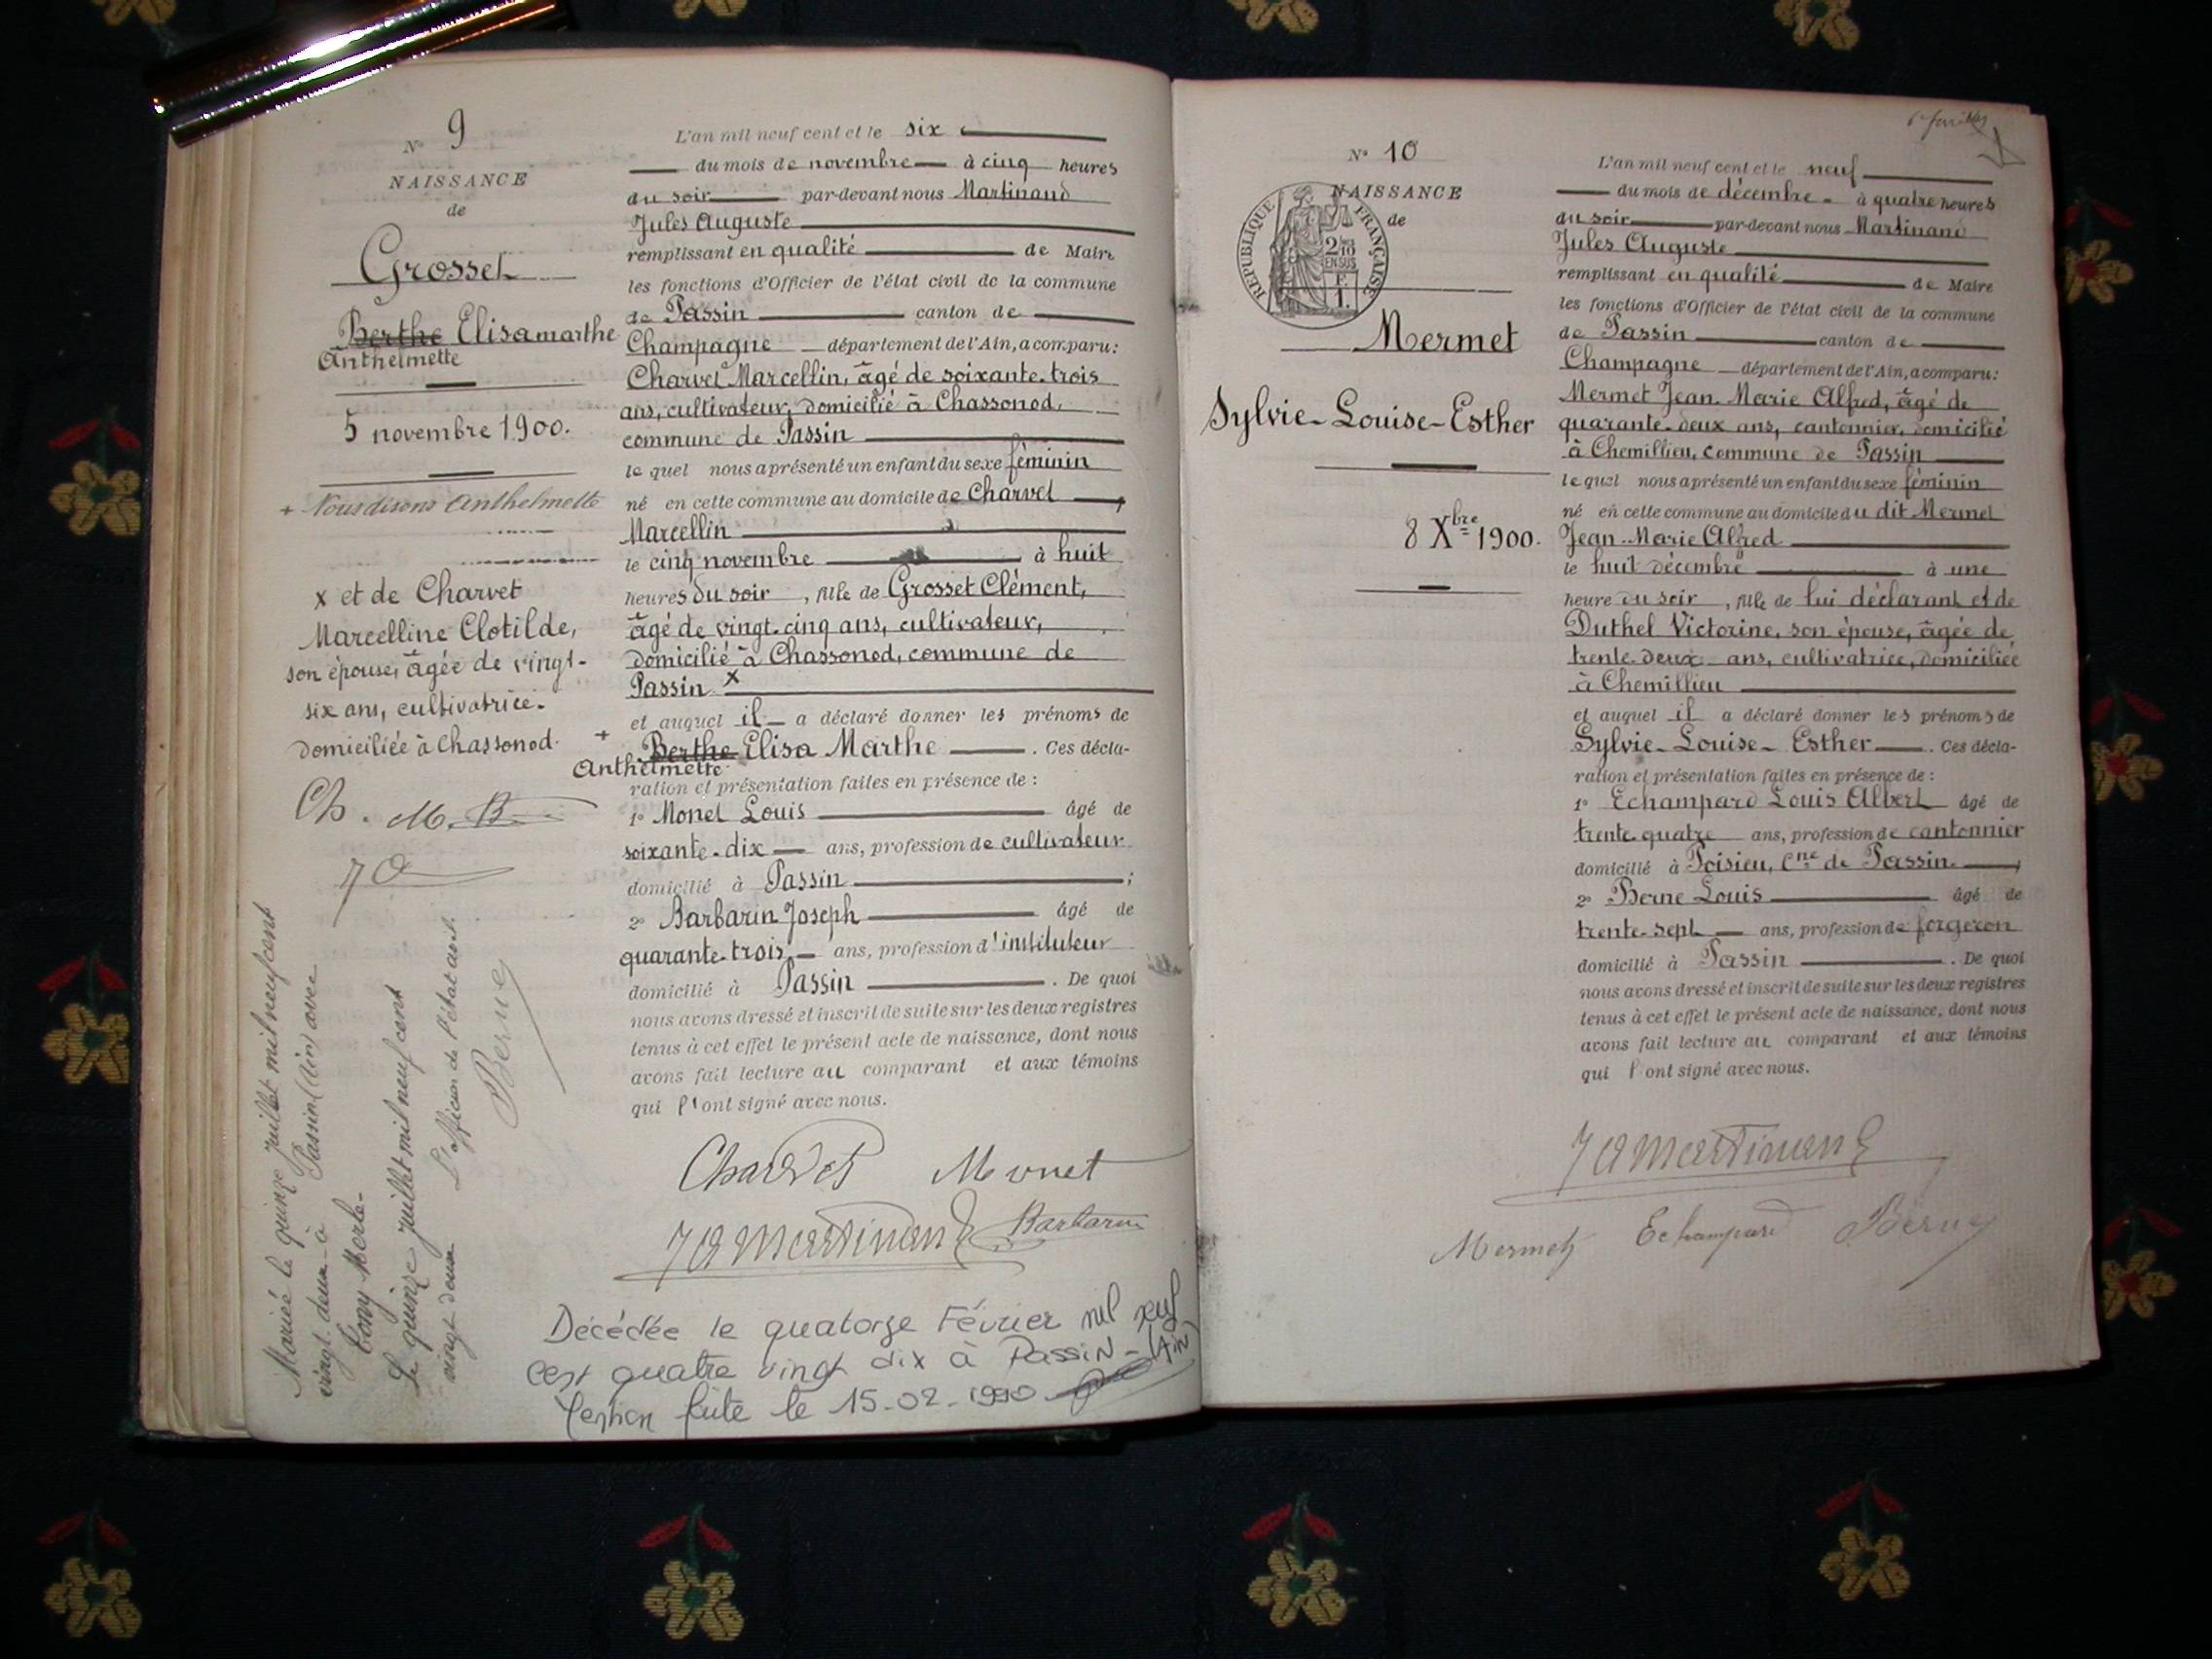 N° 9
NAISSANCE
de
Grosset
Berthe Elisa marthe
Anthelmette
5 novembre 1900.
+ Nous disons Anthelmette
x et de Charvet
Marcelline Clotilde,
son épouse, âgée de vingt-
six ans, cultivatrice.
domiciliée à Chassonod.
Ch. M. B
Mariée le quinze juillet mil neuf cent
vingt deux à Passin (Ain) avec
Merle
Le quinze juillet mil neuf cent
vingt deux L'officier de l'état civil
Berne
L'an mil neuf cent et le six
du mois de novembre à cinq heures
du soir par-devant nous Martinand
Jules Auguste
remplissant en qualité de Maire
les fonctions d'Officier de l'état civil de la commune
de Passin canton de
Champagne département de l'Ain, a comparu:
Charvet Marcellin, âgé de soixante-trois
ans, cultivateur, domicilié à Chassonod,
commune de Passin
lequel nous a présenté un enfant du sexe féminin
né en cette commune au domicile de Charvet
Marcellin
le cinq novembre à huit
heures du soir, fille de Grosset Clément,
âgé de vingt-cinq ans, cultivateur,
domicilié à Chassonod, commune de
Passin x
et auquel il a déclaré donner les prénoms de
+ Berthe Elisa Marthe. Ces décla-
Anthelmette
ration et présentation faites en présence de :
1° Monet Louis âgé de
soixante-dix ans, profession de cultivateur
domicilié à Passin ;
2° Barbarin Joseph âgé de
quarante-trois ans, profession d'instituteur
domicilié à Passin. De quoi
nous avons dressé et inscrit de suite sur les deux registres
tenus à cet effet le présent acte de naissance, dont nous
avons fait lecture au comparant et aux témoins
qui l'ont signé avec nous.
Charvet Monet
JA Martinand Barbarin
Décédée le quatorze Février mil neuf
cent quatre vingt dix à Passin - (Ain)
faite le 15-02-1990
N° 10
NAISSANCE
de
RÉPUBLIQUE FRANÇAISE
2/10
EN SUS
Mermet
Sylvie-Louise-Esther
8 Xbre 1900.
L'an mil neuf cent et le neuf
du mois de décembre à quatre heures
du soir par-devant nous Martinand
Jules Auguste
remplissant en qualité de Maire
les fonctions d'Officier de l'état civil de la commune
de Passin canton de
Champagne département de l'Ain, a comparu:
Mermet Jean-Marie Alfred, âgé de
quarante-deux ans, cantonnier, domicilié
à Chemillieu, commune de Passin
lequel nous a présenté un enfant du sexe féminin
né en cette commune au domicile du dit Mermet
Jean-Marie Alfred
le huit décembre à une
heure du soir, fille de lui déclarant et de
Duthel Victorine, son épouse, âgée de
trente-deux ans, cultivatrice, domiciliée
à Chemillieu
et auquel il a déclaré donner les prénoms de
Sylvie-Louise-Esther. Ces décla-
ration et présentation faites en présence de :
1° Echampard Louis Albert âgé de
trente-quatre ans, profession de cantonnier
domicilié à Poisieu, Cne de Passin ;
2° Berne Louis âgé de
trente-sept ans, profession de forgeron
domicilié à Passin. De quoi
nous avons dressé et inscrit de suite sur les deux registres
tenus à cet effet le présent acte de naissance, dont nous
avons fait lecture au comparant et aux témoins
qui l'ont signé avec nous.
JA Martinand
Mermet Echampard Berne